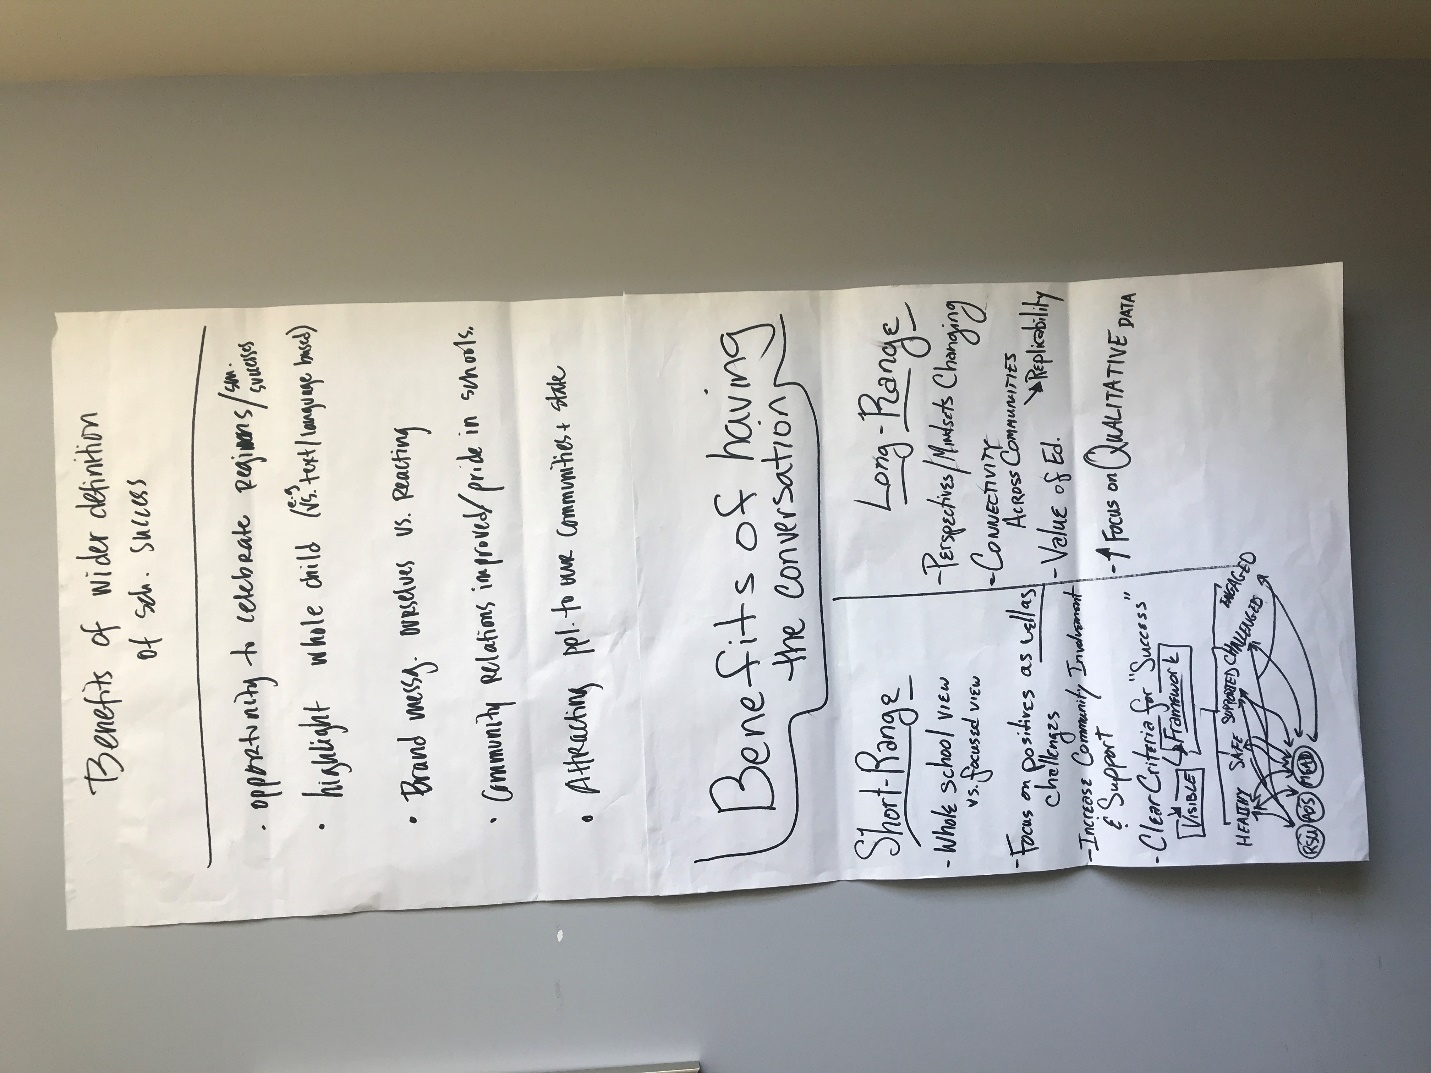 Benefits of wider definition
of sch. success
• opportunity to celebrate regions/sm. successes
• highlight whole child (e.g. vs. text/language based)
• Brand messg. ourselves vs. reacting
• Community relations improved/pride in schools.
• Attracting ppl. to our communities + state
Benefits of having
the conversation
Short-Range
- Whole School view
vs. focused view
- Focus on positives as well as
challenges
- Increase Community Involvement
& Support
- Clear Criteria for "Success"
VISIBLE
FRAMEWORK
HEALTHY SAFE SUPPORTED CHALLENGED ENGAGED
RSU POS
Long-Range
- Perspectives/Mindsets Changing
- CONNECTIVITY
ACROSS COMMUNITIES
Replicability
- Value of Ed.
- ↑ Focus on QUALITATIVE DATA